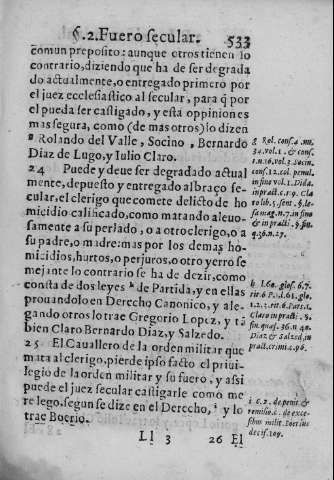 §.2. Fuero secular. 533
comun preposito: aunque otros tienen lo
contrario, diziendo que ha de ser degrada
do actualmente, o entregado primero por
el juez ecclesiastico al secular, para q̃ por
el pueda ser castigado, y esta oppiniones
mas segura, como (de mas otros) lo dizen
Rolando del Valle, Socino, Bernardo
Diaz de Lugo, y Iulio Claro.
24 Puede y deue ser degradado actual
mente, depuesto y entregado al braço se-
cular, el clerigo que comete delicto de ho
micidio calificado, como matando aleuo-
samente a su perlado, o a otro clerigo, o a
su padre, o madre: mas por los demas ho-
micidios, hurtos, o perjuros, o otro yerro se
mejante lo contrario se ha de dezir, como
consta de dos leyes h de Partida, y en ellas
prouandolo en Derecho Canonico, y ale-
gando otros lo trae Gregorio Lopez, y tã
bien Claro Bernardo Diaz, y Salzedo.
25 El Cauallero de la orden militar que
mata al clerigo, pierde ipso facto el priui-
legio de la orden militar y su fuero, y assi
puede el juez secular castigarle como me
re lego, segun se dize en el Derecho, i y lo
trae Boerio.
Ll 3 26 El
g Rol. cons. 4. nu.
34. vol. 1. & cons.
1. n. 16. vol. 3. Socin.
cons. 12. col. penul.
in fine vol. 1. Did a.
in pract. c. 19. Cla
ro lib. 5. sent. §. le-
sa mag. n. 7. in fin
& in practi. §. fin.
q. 36. n. 27.
h l. 60. glos. 6. 7.
Claro in practi. §.
fin. quæs. 36. n. 40.
Diaz & Salzed. in
pract. crimi. c. 96.
i c. 2. de pœnit. &
remissio.
decis. 109.